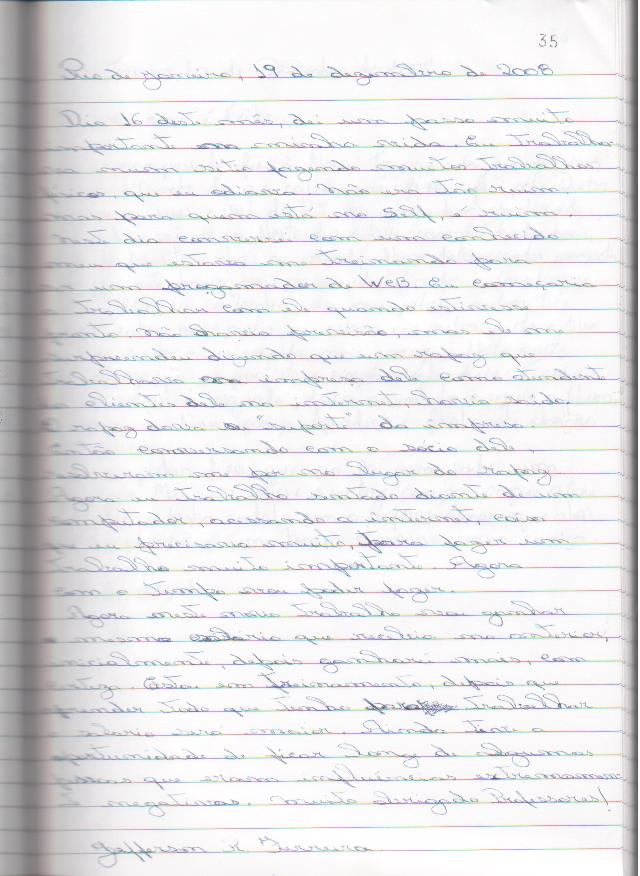 35
Rio de Janeiro, 19 de dezembro de 2008
Dia 16 deste mês, dei um passo muito
importante na minha vida. Eu trabalha-
va num sítio fazendo muitos trabalhos
que eu odiava. Não era tão ruim
mas para quem está no Self, é ruim.
Neste dia conversei com um conhecido
meu que estava me treinando para
ser um progamador de WEB. Eu começaria
a trabalhar com ele quando estivesse
pronto. Não havia previsão, mas ele me
surpreendeu dizendo que um rapaz que
trabalhava na impresa dele como atendente
a clientes dele na internet, havia saído.
O rapaz dava o "suporte" da impresa.
Então conversando com o sócio dele,
resolveram me por no lugar do rapaz.
Agora eu trabalho sentado diante de um
computador, acessando a internet, coisa
que eu precisava muito, para fazer um
trabalho muito importante. Agora
com o tempo vou poder fazer.
Agora neste novo trabalho vou ganhar
o mesmo salário que recebia no anterior,
inicialmente, depois ganharei mais, com
certeza. Estou em treinamento, depois que
aprender tudo que tenho trabalhar
o salario será maior. Ainda tive a
oportunidade de ficar longe de algumas
pessoas que eram influências extremamen-
te negativas. Muito obrigado Professores!
Jefferson K Ferreira